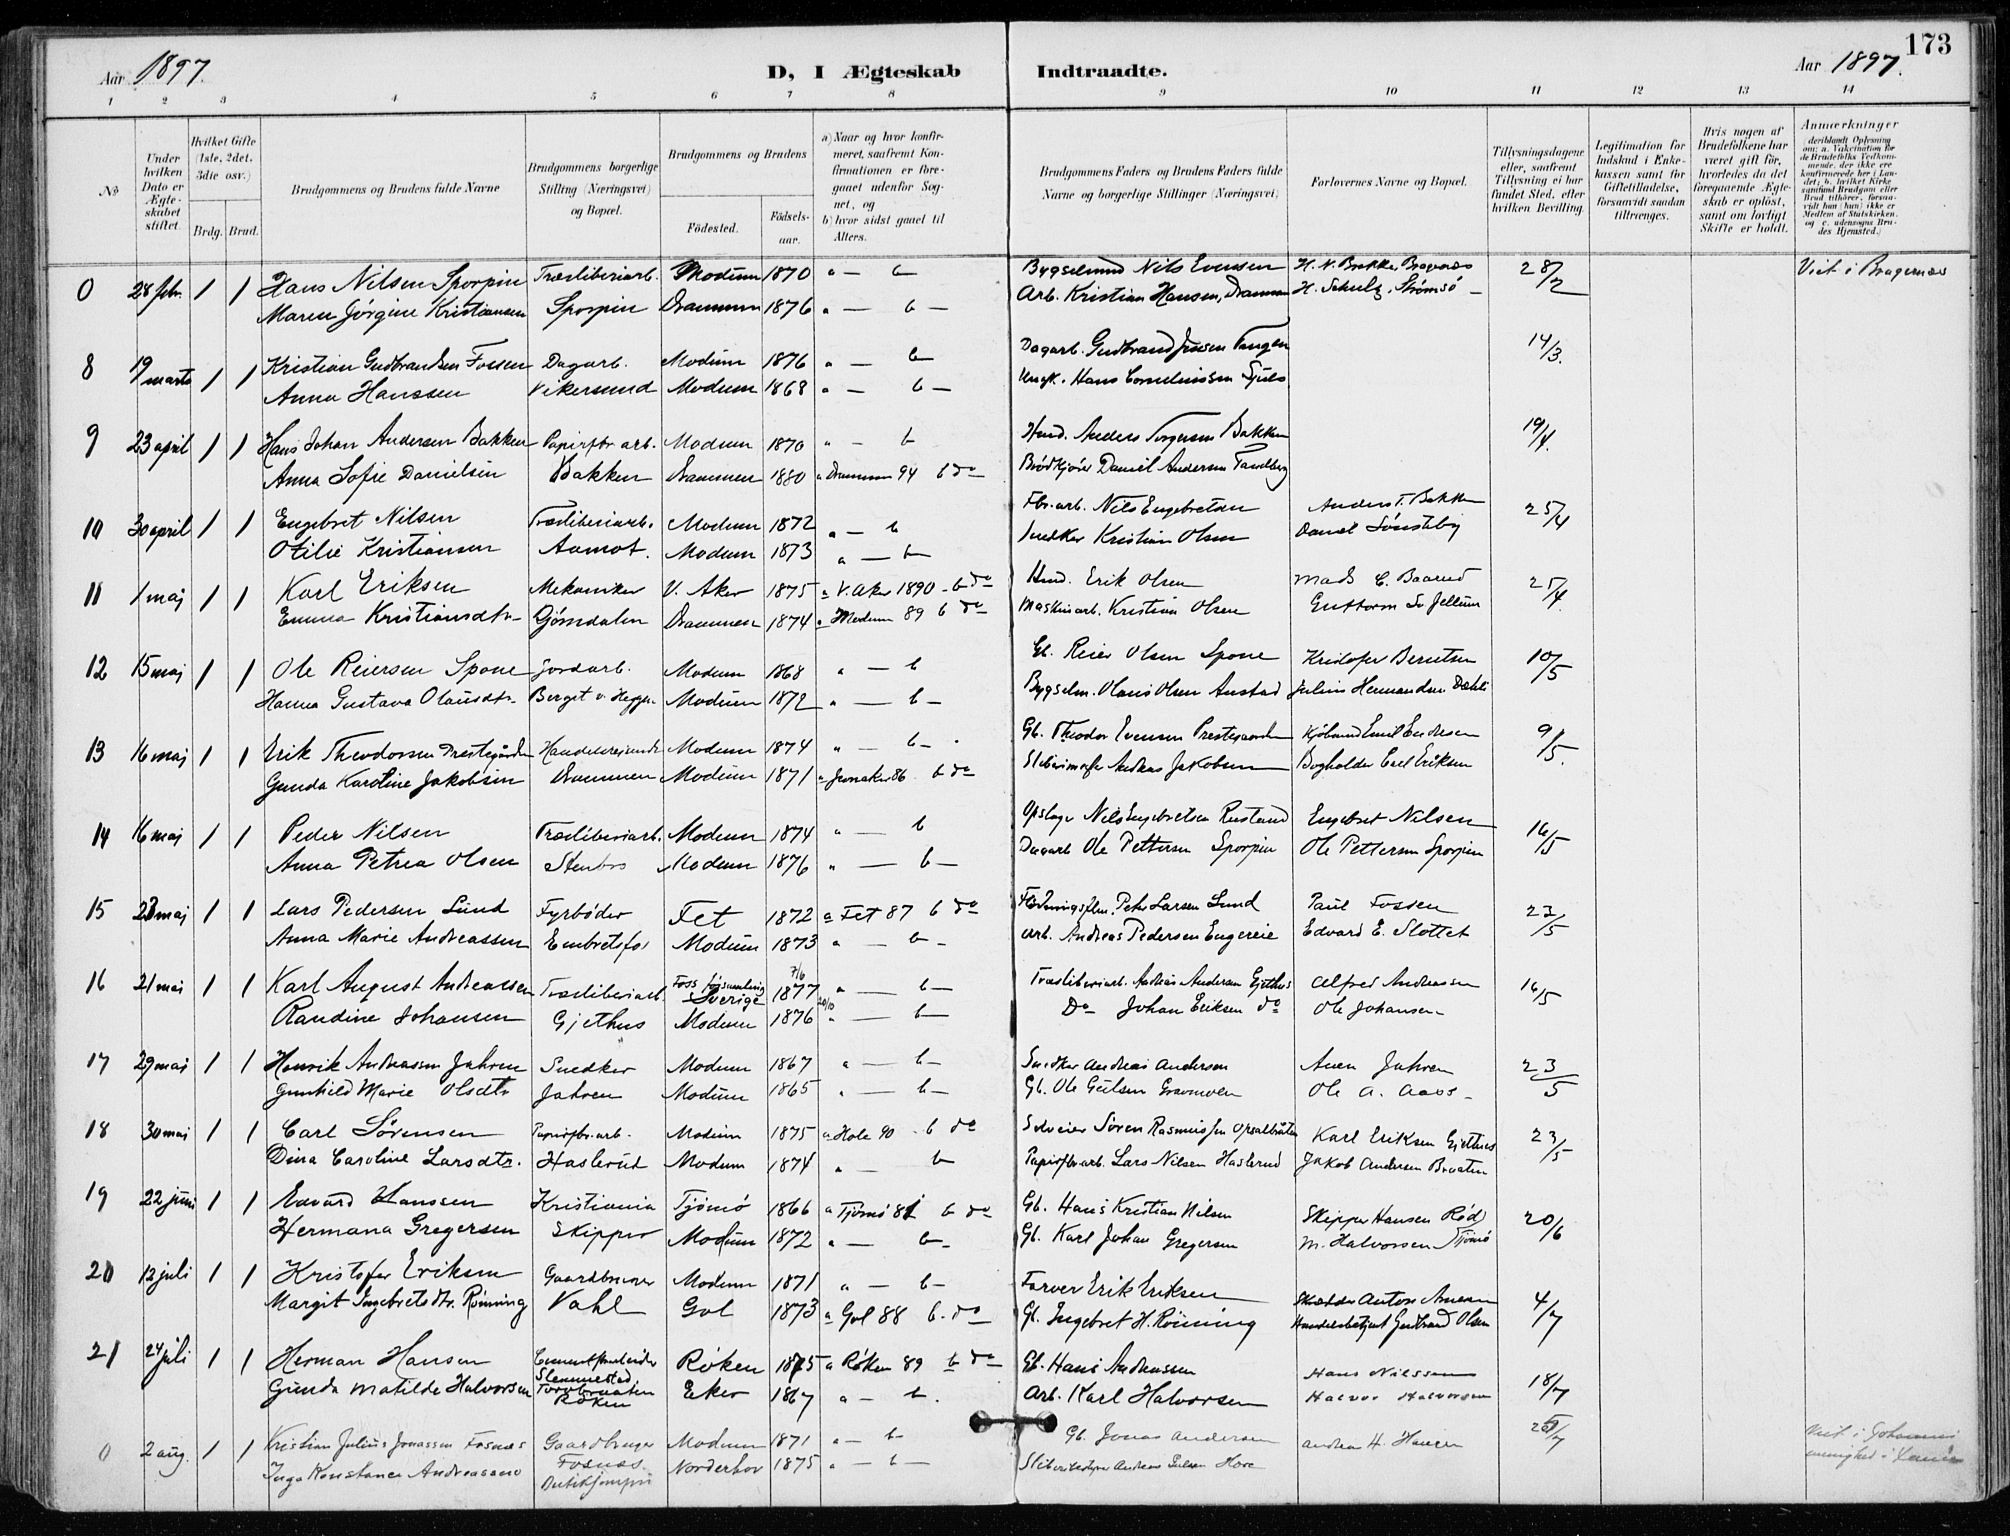 173
Aar 1897.
D, I Ægteskab Indtraadte.
Aar 1897.
1 2 3 4 5 6 7 8 9 10 11 12 13 14
No
Under hvilken Dato er Ægteskabet stiftet.
Hvilket Gifte (1ste, 2det, 3die osv.)
Brdg. Brud.
Brudgommens og Brudens fulde Navne
Brudgommens borgerlige Stilling (Næringsvei) og Bopæl.
Brudgommens og Brudens
Fødested.
Fødselsaar.
a) Naar og hvor konfirmeret, saafremt Konfirmationen er foregaaet udenfor Sognet, og
b) hvor sidst gaaet til Alters.
Brudgommens Faders og Brudens Faders fulde Navne og borgerlige Stillinger (Næringsvei)
Forlovernes Navne og Bopæl.
Tillysningsdagene eller, saafremt Tillysning ei har fundet Sted, efter hvilken Bevilling.
Legitimation for Indskud i Enkekassen samt for Giftetilladelse, forsaavidt saadan tiltrænges.
Hvis nogen af Brudefolkene har været gift før, hvorledes da det foregaaende Ægteskab er opløst, samt om lovligt Skifte er holdt.
Anmærkninger
deriblandt Oplysning om: a. Vakcination for de Brudefolks Vedkommende, der ikke ere konfirmerede her i Landet; b. hvilket Kirkesamfund Brudgom eller Brud tilhører, forsaavidt han (hun) ikke er Medlem af Statskirken, og c. udensogns Brudes Hjemsted.)
0 28 febr. 1 1 Hans Nilsen Sporpin Træsliberiarb. Modum 1870 a — b Bygselmand Nils Evensen H. N. Bakke, Bragernæs 28/2 Viet i Bragernæs
Maren Jørgine Kristiansen Sporpin Drammen 1876 a — b — Arb. Kristian Hansen, Drammen H. Schulz, Strømsø —
8 19 marts 1 1 Kristian Gudbrandsen Fossen Dagarb. Modum 1876 a — b — Dagarb. Gudbrand Jensen Tangen 14/3.
Anna Hanssen Vikersund Modum 1868 a — b — Ungk. Hans Corneliussen
9 23 april 1 1 Hans Johan Andersen Bakken Papirfbr arb. Modum 1870 a — b Husmd. Anders Torgersen Bakken 19/4.
Anna Sofie Danielsen Bakken Drammen 1880 a Drammen 94 b do Brødkjører Daniel Andersen Tandberg
10 30 april 1 1 Engebret Nilsen Træsliberiarb. Modum 1872 a — b Fbr. arb. Nils Engebretsen Anders T. Bakken 25/4
Otilie Kristiansen Aamot. Modum 1873 a — b — Snedker Kristian Olsen Daniel Sønsteby
11 1 maj 1 1 Karl Eriksen Mekaniker V. Aker 1875 a V. Aker 1890 — b do Husmd. Erik Olsen Mads C. Baarud 25/4.
Emma Kristiansdtr. Gjømdalen Drammen 1874 a Modum 89 b do Maskinarb. Kristian Olsen Guttorm Jellum
12 15 maj 1 1 Ole Reiersen Spone Jordarb. Modum 1868 a — b Gb. Reier Olsen Spone Kristofer Berntsen 10/5
Hanna Gustava Olausdtr. Berget v. Heggen Modum 1872 a — b — Bygselm. Olaus Olsen Anstad Julius Hermandsen Dæhli
13 16 maj 1 1 Erik Theodorsen Prestegården Handelsreisende Modum 1874 a — b — Gb. Theodor Evensen Prestegaarden Kjøbmd Emil Endresen 9/5.
Gunda Karoline Jakobsen Drammen Modum 1871 a Jevnaker 86 b do Sliberimester Andreas Jakobsen Bogholder Carl Eriksen
14 16 maj 1 1 Peder Nilsen Træsliberiarb. Modum 1874 a — b Opslager Nils Engebretsen Rustand Engebret Nilsen 16/5
Anna Petrea Olsen Stenbro Modum 1876 a — b — Dagarb. Ole Pettersen Sporpin Ole Pettersen Sporpin
15 23 maj 1 1 Lars Pedersen Lund Fyrbøder Fet 1872 a Fet 87 b do Peter Larsen Lund Paul Fossen 23/5
Anna Marie Andreassen Embretsfos Modum 1873 a — b — Arb. Andreas Pedersen Engereie Edvard E. Slottet
16 21 mai 1 1 Karl August Andreassen Træsliberiarb. Foss forsamling Sverige 7/6 1877 a — b — Træsliberiarb. Andreas Andersen Gjethus Alfred Andreassen 16/5
Randine Johansen Gjethus Modum 1876 20/10 a — b — Do Johan Eriksen do Ole Johansen —
17 29 mai 1 1 Henrik Andreassen Jahren Snedker Modum 1867 a — b — Snedker Andreas Andersen Aren Jahren 23/5
Gunhild Marie Olsdtr Jahren Modum 1865 a — b — Gb. Ole Gulsen Gravmoen Ole A. Aass —
18 30 mai 1 1 Carl Sørensen Papirfbr. arb. Modum 1875 a Hole 90 — b do Selveier Søren Rasmussen Opsalbråten Karl Eriksen Gjethus 23/5
Dina Caroline Larsdtr. Haslerud Modum 1874 a — b Papirfbr arb. Lars Nilsen Haslerud Jakob Andersen Braaten
19 22 juni 1 1 Edvard Hanssen Kristiania Tjømø 1866 a Tjømø 81 b do Gb. Hans Kristian Nilsen Skipper Hansen Rød 20/6
Hermana Gregersen Skipper Modum 1872 a — b — Gb. Karl Johan Gregersen M. Halvorsen Tjømø
20 12 juli 1 1 Kristofer Eriksen Gaardbruver Modum 1871 a — b — Farver Erik Eriksen Skrædder Anton Arnesen 4/7
Margit Ingebretsdtr. Rønning Vahl Gol 1873 a Gol 88 b. do Gb. Ingebret H. Rønning Handelsbetjent Gudbrand Olsen
21 24 juli 1 1 Herman Hansen Cementfbarbeider Slemmestad Røken 1875 a Røken 89 b do Gb. Hans Andreassen Hans Nilssen 18/7
Gunda Matilde Halvorsen Torvbraaten Røken Eker 1867 a — b. Arb. Karl Halvorsen Halvor Halvorsen
0 2 aug. 1 1 Kristian Julius Jonassen Fosnæs Gaardbruger Modum 1871 a — b — Gb. Jonas Andersen Andreas H. Hansen 25/7 Viet i Johannes menighed i
Inga Konstance Andreassen Fosnæs. Butikjomfru Norderhov 1875 a — b — Andreas Gulsen Hove